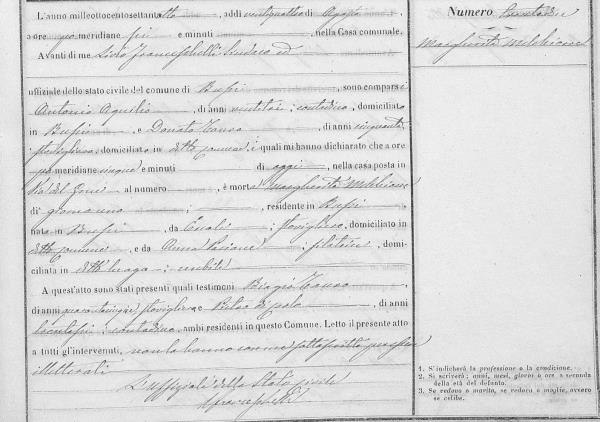 L'anno milleottocentosettantotto, addì ventiquattro di Agosto
a ore pomeridiane sei e minuti , nella Casa comunale.
Avanti di me Sindaco ed
uffiziale dello stato civile del comune di Bussi , sono comparsi
Antonio Aquilio , di anni ventitrè ; contadino , domiciliato
in Bussi , e Donato , di anni cinquanta
; stovigliaio, domiciliato in detto comune ; i quali mi hanno dichiarato che a ore
pomeridiane cinque e minuti di oggi , nella casa posta in
Via del al numero , è morta Margherita Melchiorre
di giorno uno ; , residente in Bussi ,
nata in Bussi , da ; stovigliaio, domiciliato in
detto comune , e da Anna ; filatrice , domi-
ciliata in detto luogo ; nubile
A quest'atto sono stati presenti quali testimoni Biagio
di anni stovigliaio e Pietro di Paolo , di anni
; contadino, ambi residenti in questo Comune. Letto il presente atto
a tutti gl'intervenuti, non lo hanno con me sottoscritto per essere
illetterati
L'uffiziale dello Stato Civile
Numero
Margherita Melchiorre
1. S'indicherà la professione o la condizione.
2. Si scriverà: anni, mesi, giorni o ore a seconda
della età del defunto.
3. Se vedovo o marito, se vedova o moglie, ovvero
se celibe.